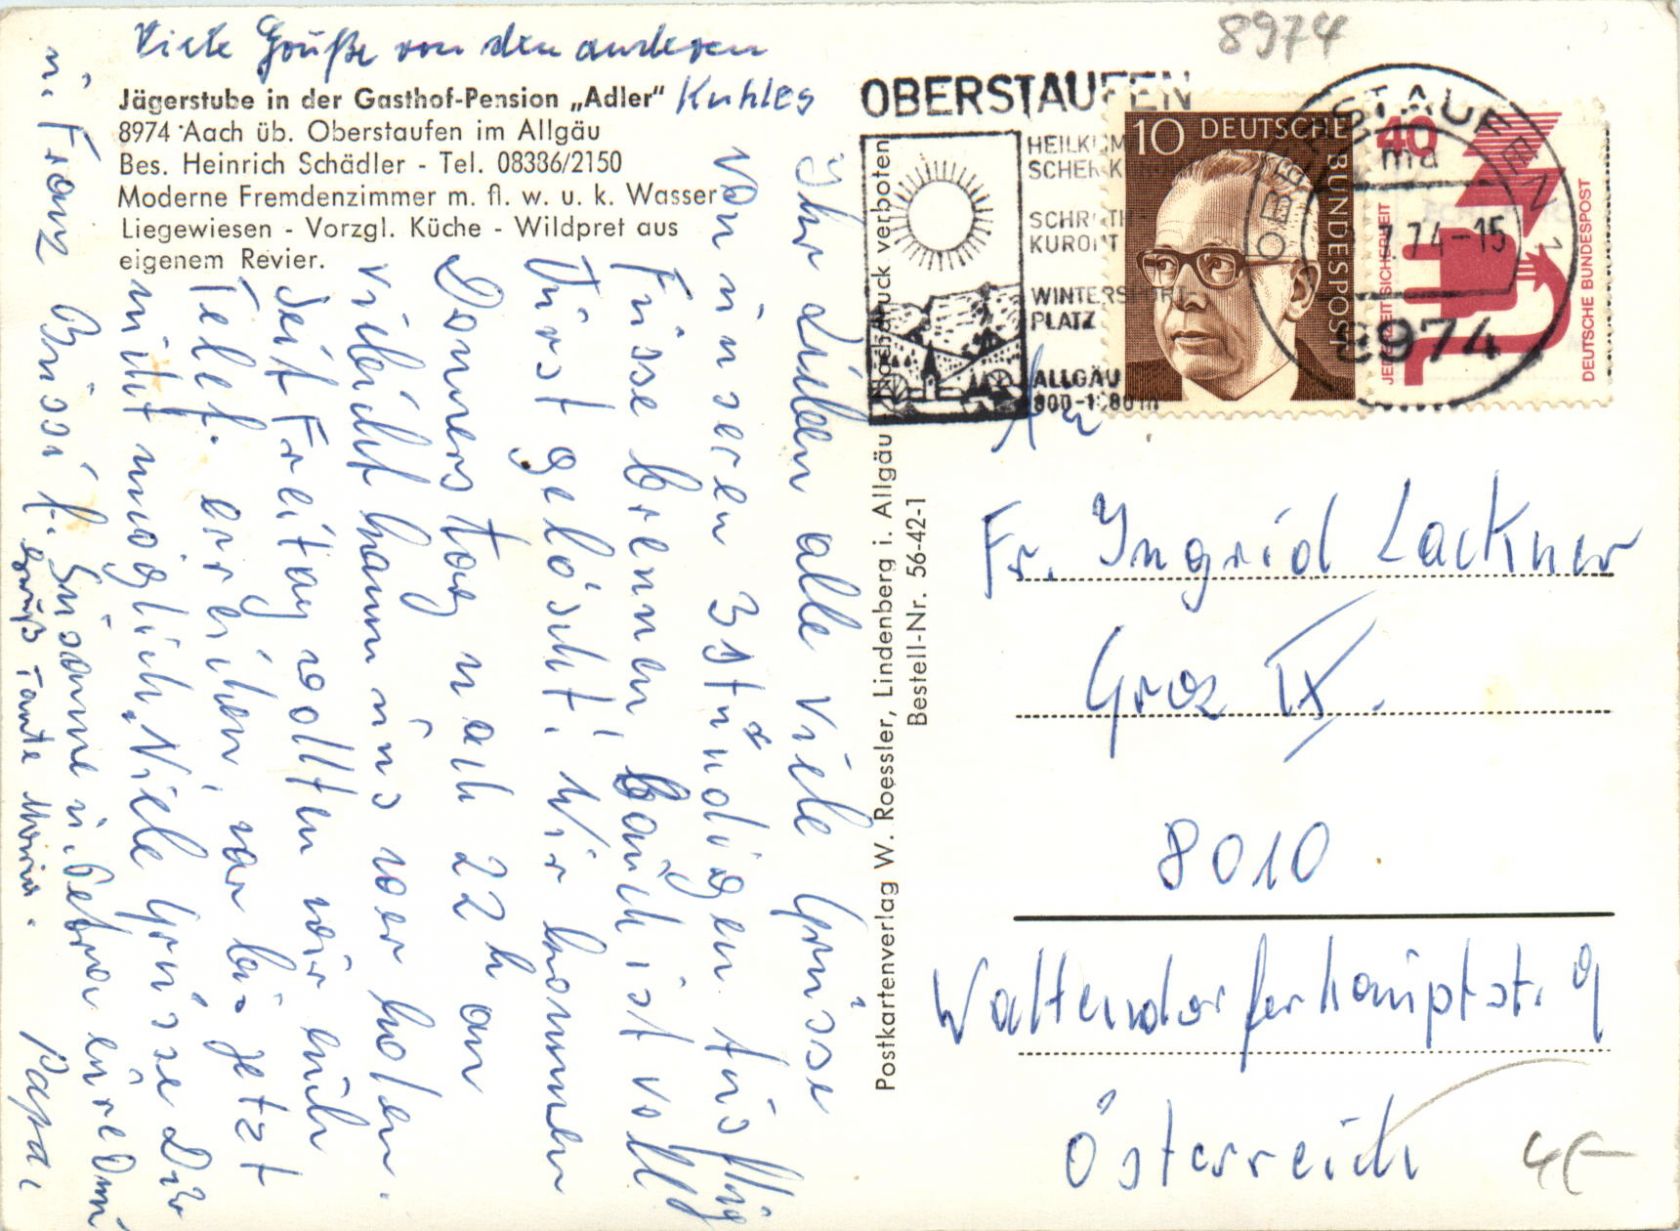 Viele Grüße von den anderen
Kuhles
Jägerstube in der Gasthof-Pension „Adler"
8974 Aach üb. Oberstaufen im Allgäu
Bes. Heinrich Schädler - Tel. 08386/2150
Moderne Fremdenzimmer m. fl. w. u. k. Wasser
Liegewiesen - Vorzgl. Küche - Wildpret aus
eigenem Revier.
Ihr Lieben alle viele Grüsse
von unseren 3stündigen
Füsse brennen, Bauch ist voll
Durst gelöscht. Wir kommen
Donnerstag nach 22 h an
vileicht kann uns wer holen.
Seit Freitag wollten wir euch
Telef. erreichen, war bis jetzt
nicht möglich. Viele Grüsse Dir
Susanne u. Petra eure Omi
u. Franz Bussi f.
Papa.
Gruß Tante Maria.
Nachdruck verboten
Postkartenverlag W. Roessler, Lindenberg i. Allgäu
Bestell-Nr. 56-42-1
8974
OBERSTAUFEN
HEILKLIM
SCHROTH-
KURORT
WINTERSPORT-
PLATZ
ALLGÄU
10 DEUTSCHE BUNDESPOST
40
JEDERZEIT SICHERHEIT
DEUTSCHE BUNDESPOST
OBERSTAUFEN 1
ma
7.74-15
8974
An
Fr. Ingrid Lackner
Graz IX.
8010
Waltendorferhauptstr. 9
Österreich
4€-